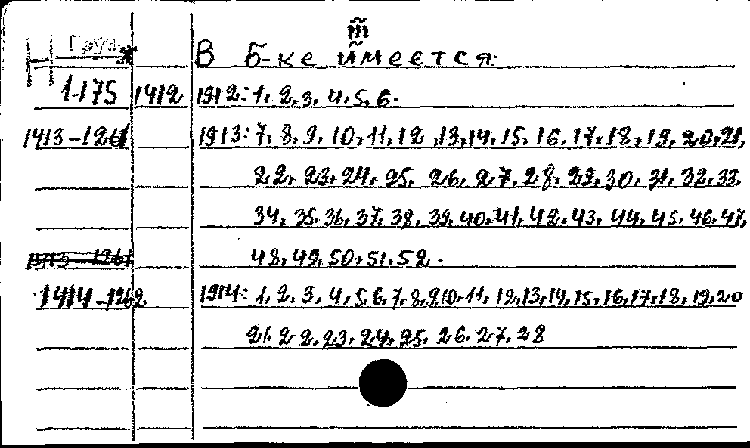 В Б-ке имеется:
Н
1-175 1412 1912: 1, 2, 3, 4, 5, 6.
1413-1261 1913: 7, 8, 9, 10, 11, 12, 13, 14, 15, 16, 17, 18, 19, 20, 21,
22, 23, 24, 25, 26, 27, 28, 29, 30, 31, 32, 33,
34, 35, 36, 37, 38, 39, 40, 41, 42, 43, 44, 45, 46, 47,
1913-1261 48, 49, 50, 51, 52.
1414-1262 1914: 1, 2, 3, 4, 5, 6, 7, 8, 9, 10, 11, 12, 13, 14, 15, 16, 17, 18, 19, 20
21, 22, 23, 24, 25, 26, 27, 28